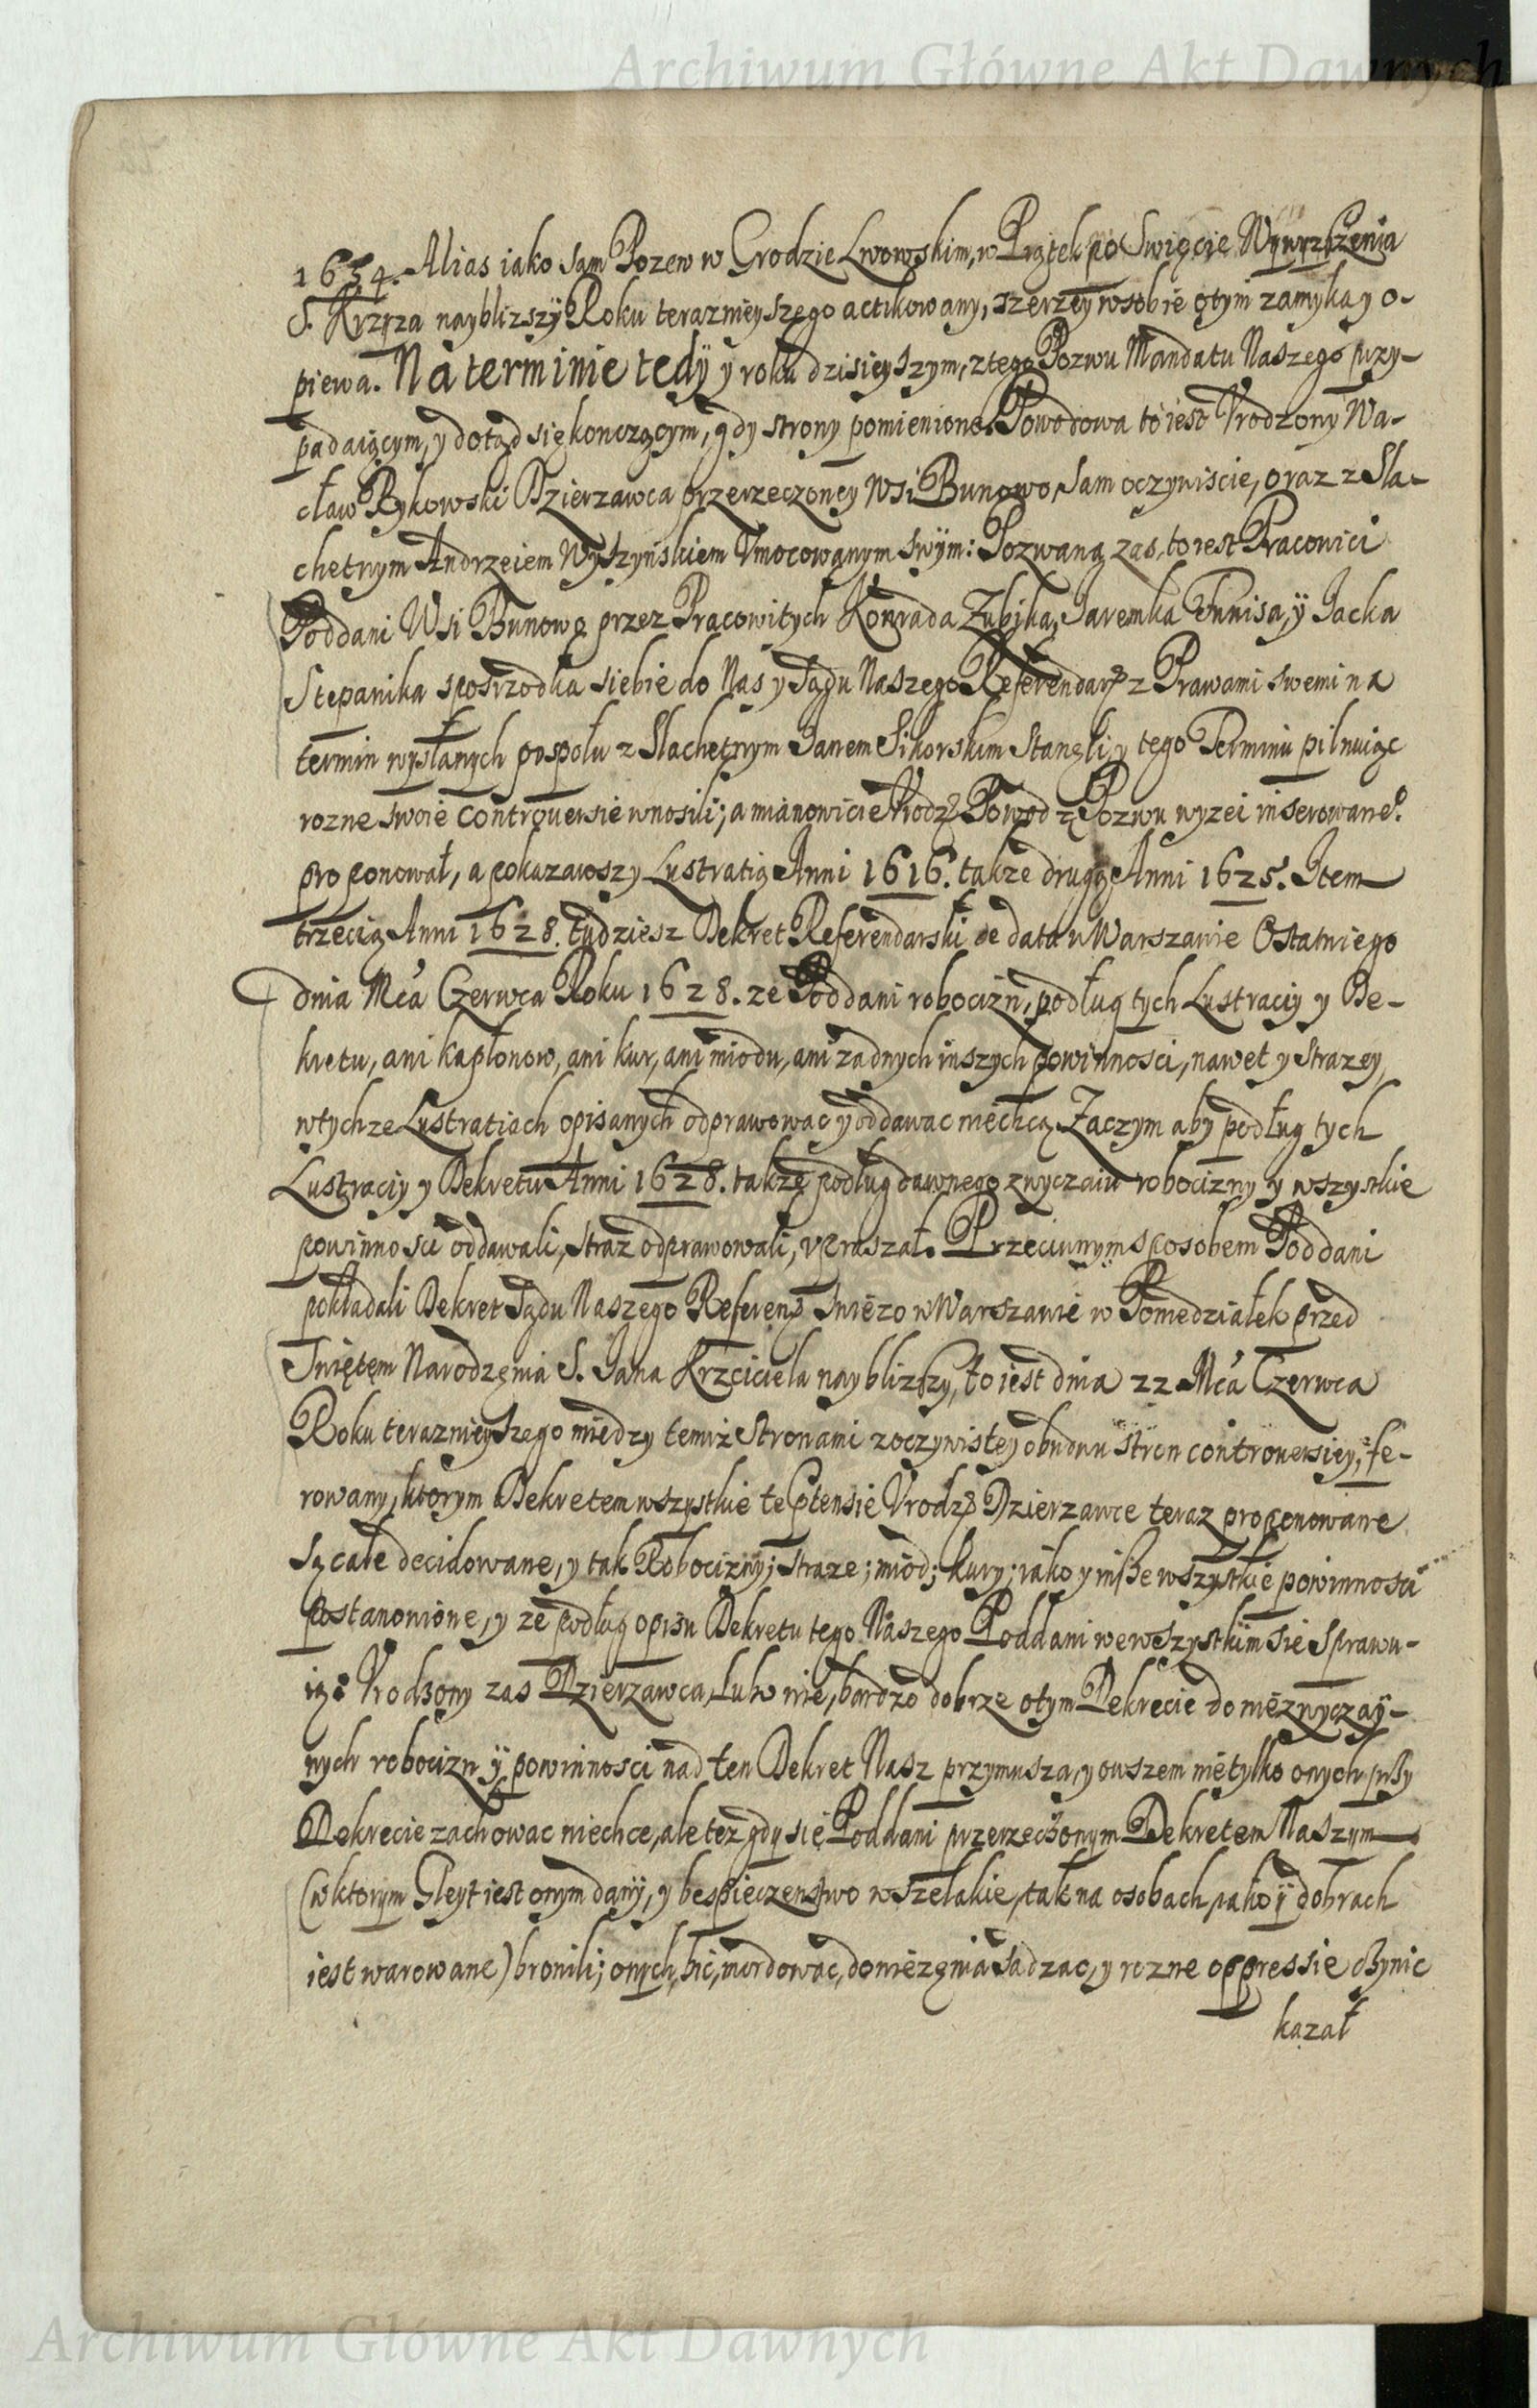 Archiwum Główne Akt Dawnych
1654. Alias iako sam Pozew w Grodzie Lwowskim, w Piątek po Swięcie
S. Krzyza nayblizszÿ Roku teraznieyszego actikowany, szerzey w sobie o tym zamyka y o-
piewa. Na terminie tedÿ y roku dzisieyszym, z tego Pozwu Mandatu Naszego przy-
padaiącym, y dotąd się konczącym, gdy strony pomienione, Powodowa to iest Vrodzony Wa-
cław Rykowski Dzierzawca przerzeczoney Wsi Bunowo, sam oczywiscie, oraz z Sla-
chetnym Andrzeiem Wyszyńskiem Vmocowanym swÿm: Pozwana zas, to iest Pracowici
Poddani Wsi Bunowa przez Pracowitych Konrada Zubika, Jaremka Funisa, ÿ Jacka
Stepanika sposrzodka siebie do Nas y Sądu Naszego Referendar z Prawami swemi na
termin wysłanych pospołu z Slachetnym Janem Sikorskim Stanęli, y tego Terminu pilnuiąc
rozne swoie controuersie wnosili; a mianowicie Vrodz Powod z Pozwu wyzei inserowane°
proponował, a pokazawszy Lustratią Anni 1616. takze drugą Anni 1625. Item
trzecią Anni 1628. tudziesz Dekret Referendarski de data w Warszawie Ostatniego
dnia Mca Czerwca Roku 1628. ze Poddani robocizn, podług tych Lustraciy y De-
kretu, ani kapłonow, ani kur, ani miodu, ani zadnych inszych powinnosci, nawet y Strazey,
w tychze Lustratiach opisanych odprawowac y oddawac niechcą. Zaczym aby podług tych
Lustraciy y Dekretu Anni 1628. takze podług dawnego zwyczaiu robocizny y wszystkie
powinnosci oddawali, straz odprawowali, vpraszał. Przeciwnym sposobem Poddani
pokładali Dekret Sądu Naszego Referen swiezo w Warszawie w Poniedziałek przed
Swiętem Narodzenia S. Jana Krzciciela nayblizszy, to iest dnia 22 Mca Czerwca
Roku teraznieyszego między temiz Stronami z oczywistey obudwu stron controuersiey, fe-
rowany, ktorym Dekretem wszystkie te Ptensie Vrodz Dzierzawce teraz proponowane
są całe decidowane, y tak Robocizny; straze; miod; kury; iako y insze wszystkie powinnosci
postanowione, y ze podług opisu Dekretu tego Naszego Poddani we wszystkim sie sprawu-
ią: Vrodzony zas Dzierzawca, lubo wie, bardzo dobrze o tym Dekrecie do niezwyczaÿ-
nych robocizn ÿ powinnosci nad ten Dekret Nasz przymusza, y owszem nietylko onych przy
Dekrecie zachowac niechce, ale tez gdy się Poddani przerzeczonym Dekretem Naszym
(w ktorym Gleyt iest onym danÿ, y bespieczenstwo wszelakie, tak na osobach, iako ÿ dobrach
iest warowane) bronili; onych, bic, mordowac, do więzenia sadzac, y rozne oppressie czynic
kazał
Archiwum Główne Akt Dawnych